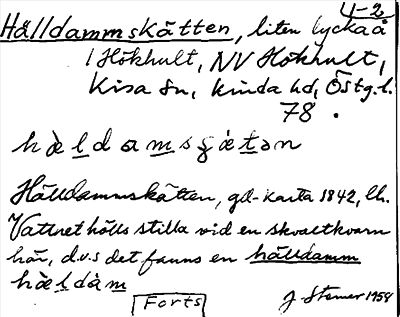 4-2
Hälldammskätten, liten lycka å
/ Hökhult, NV Hökhult,
Kisa sn, Kinda hd, Östg. l.
78.
hàldamsçátən
Hälldammskätten, gd-karta 1842, lh.
Vattnet hölls stilla vid en skvaltkvarn
här, d.v.s det fanns en hälldamm
hàldàm
Forts
J. Stemer 1958